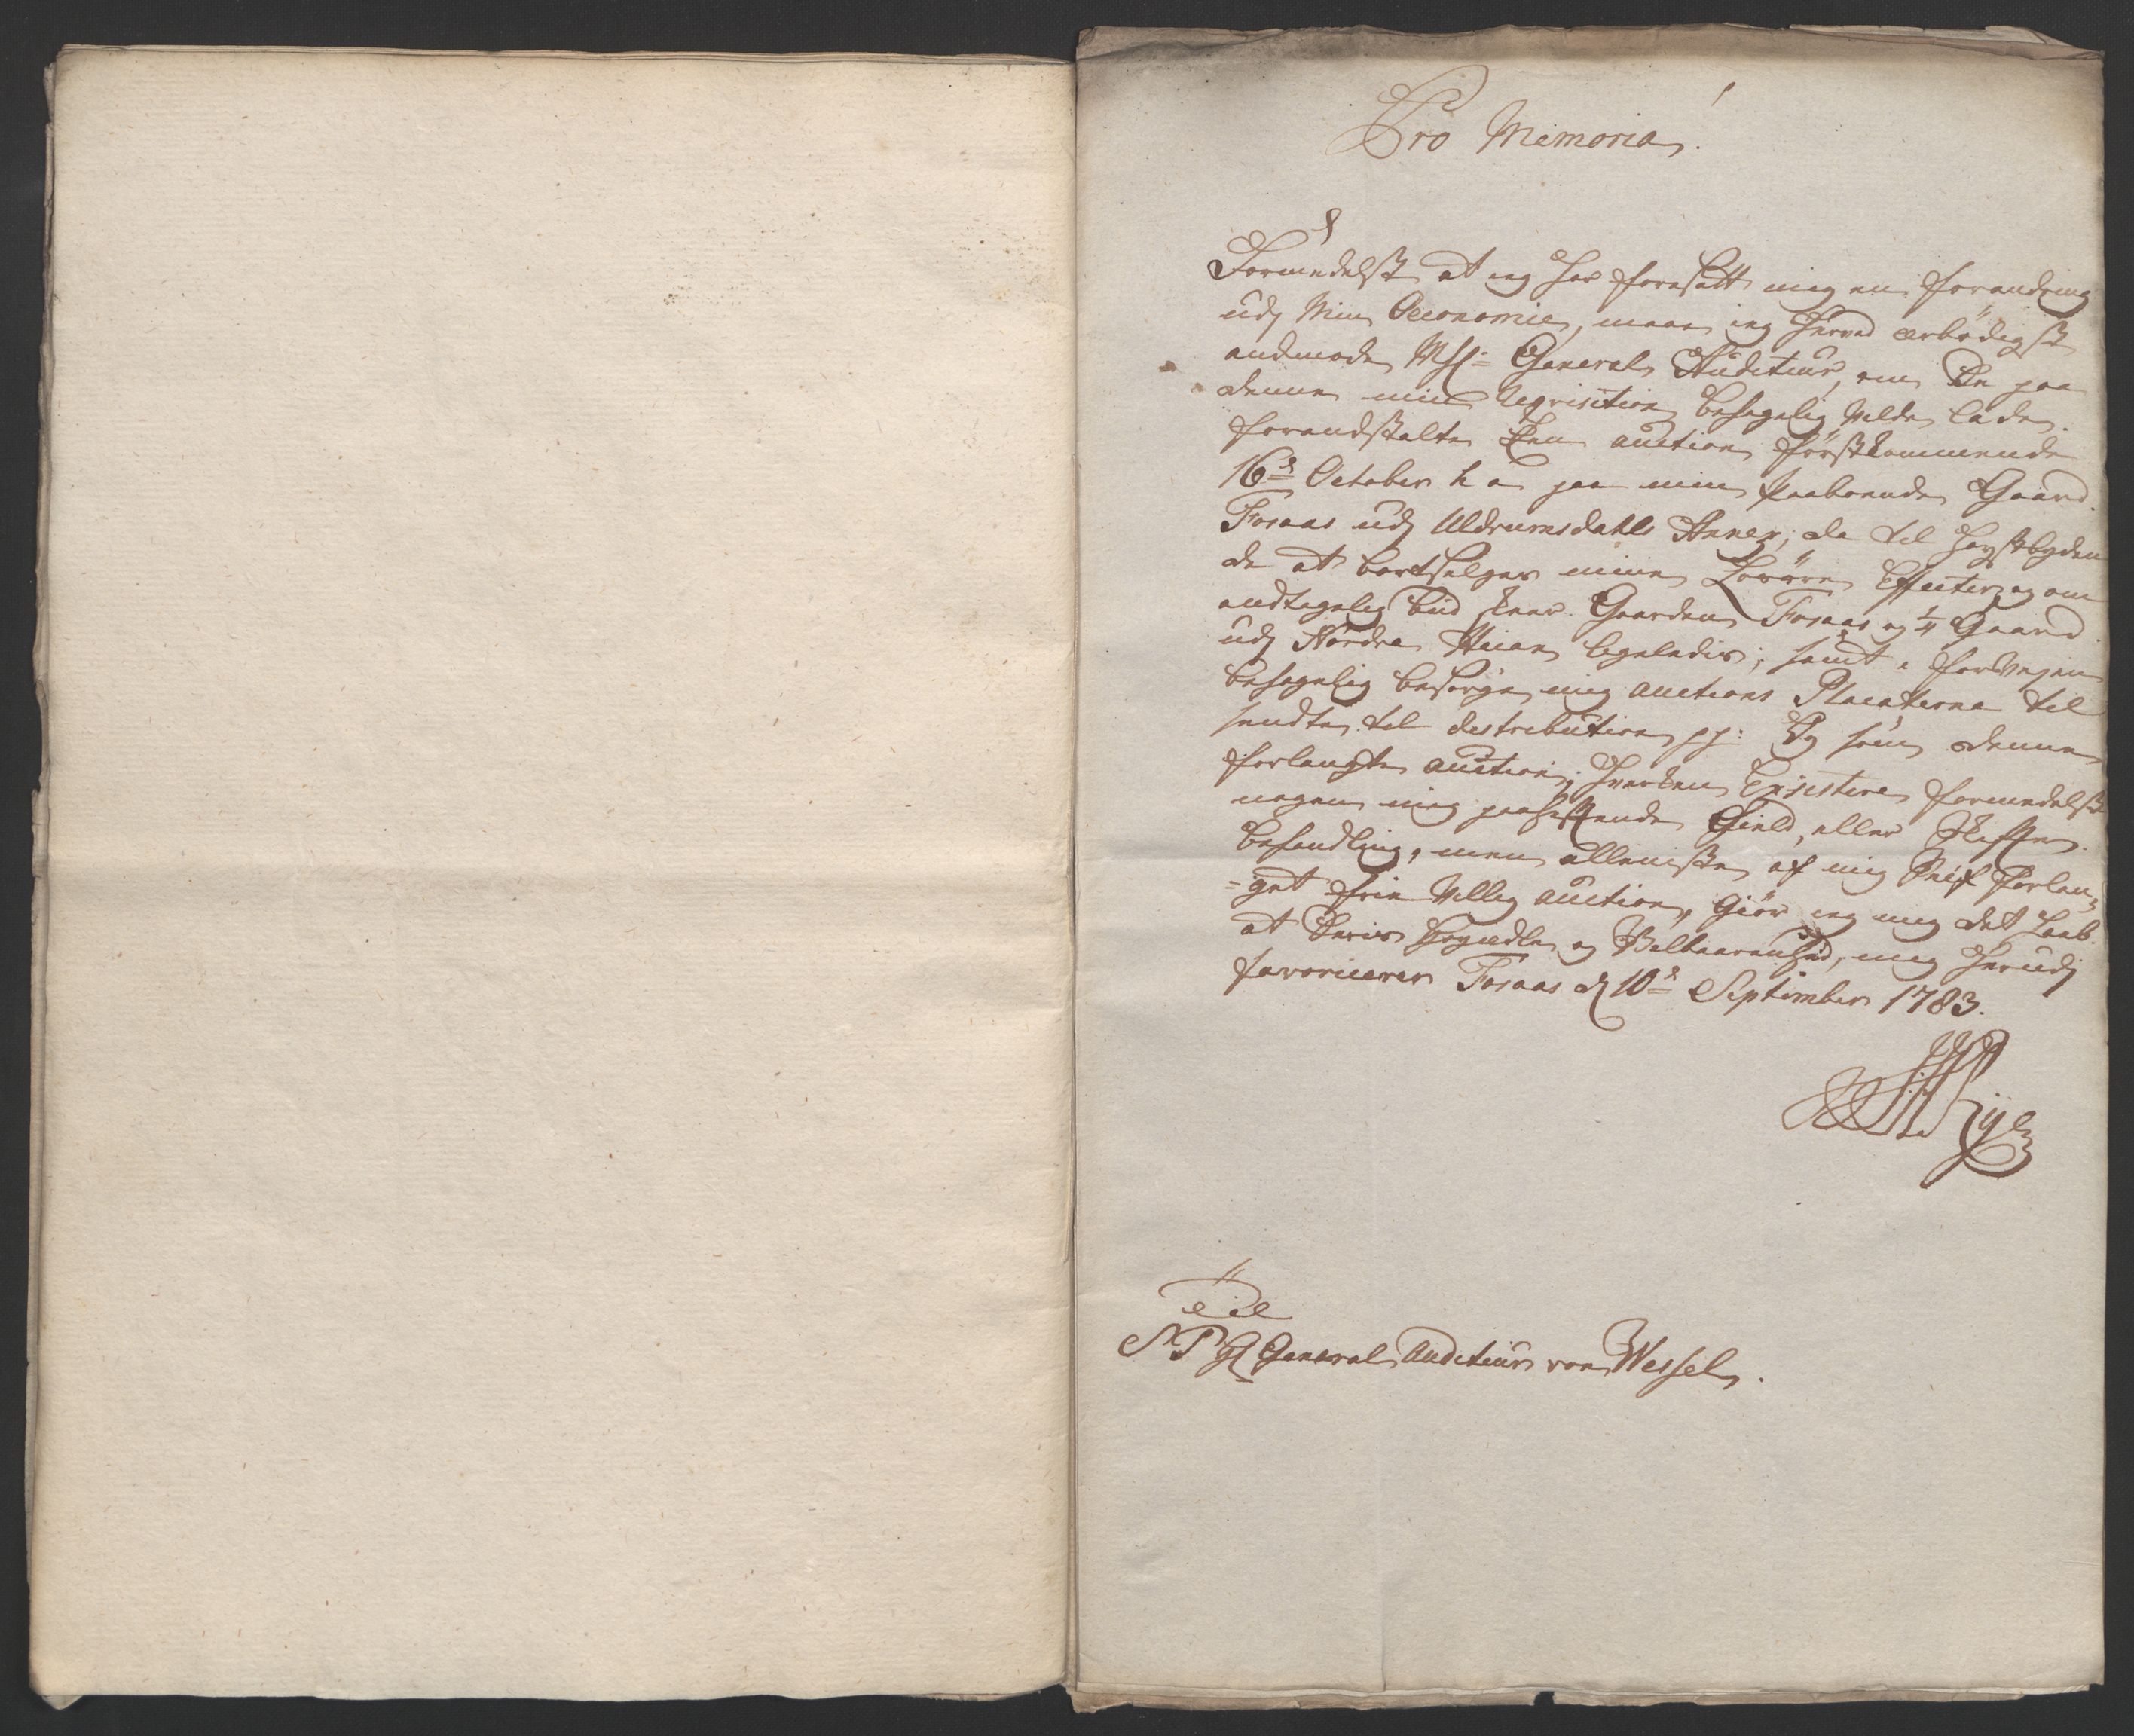 Pro Memoria
Formedelst at ieg har foresatt mig en forandring
udj Min Oeconomie, maae ieg herved ærbødigst
andmode Hr: General Auditeur, om De paa
denne min Reqvisition behagelig vilde lade
forandstalte Een auction førstkommende
16de October h a paa min paaboende Gaard
Fosaas udj Meldrumsdahls Annex, da til Høystbyden
de at bortselges mine Løsøre Effecter, og om
andtagelig bud skeer Gaarden Fosaas og 1/4 Gaard
udj Nordre ligeledes; samt i forvejen
behagelig besørge mig auctions Placaterne til
sendte til destribution pp: Og som denne
forlangte auction, hverken Existere formedelst
nogen mig paaheftende Gield, eller Skifte
behandling, men alleniste af mig Self forlan¬
-get frie Villig auction, giør ieg mig det haab
at Deris Høyædle og Velbaarenhed, mig herudj
favoriserer Fosaas d 10de September 1783.
Rye
S T Hr General Auditeur von Wessel.